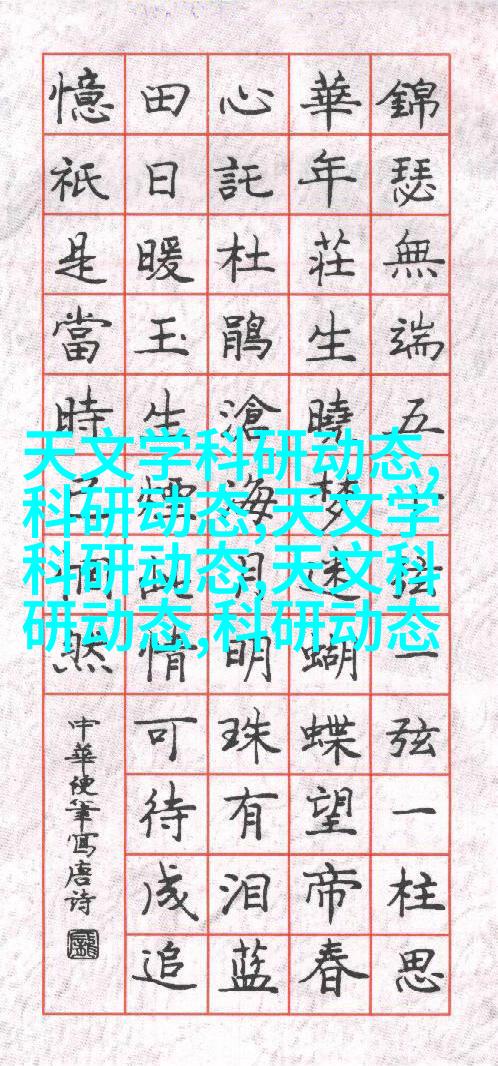 錦瑟無端五十弦一弦一柱思
華年莊生曉梦迷蝴蝶望帝春
心託杜鹃滄海月明珠有泪蓝
田日暖玉生煙此情可待成追
憶祇是當時已惘然
中華硬筆寫唐诗
天文学科研动态,
科研动态,天文学
科研动态,天文科
研动态,科研动态